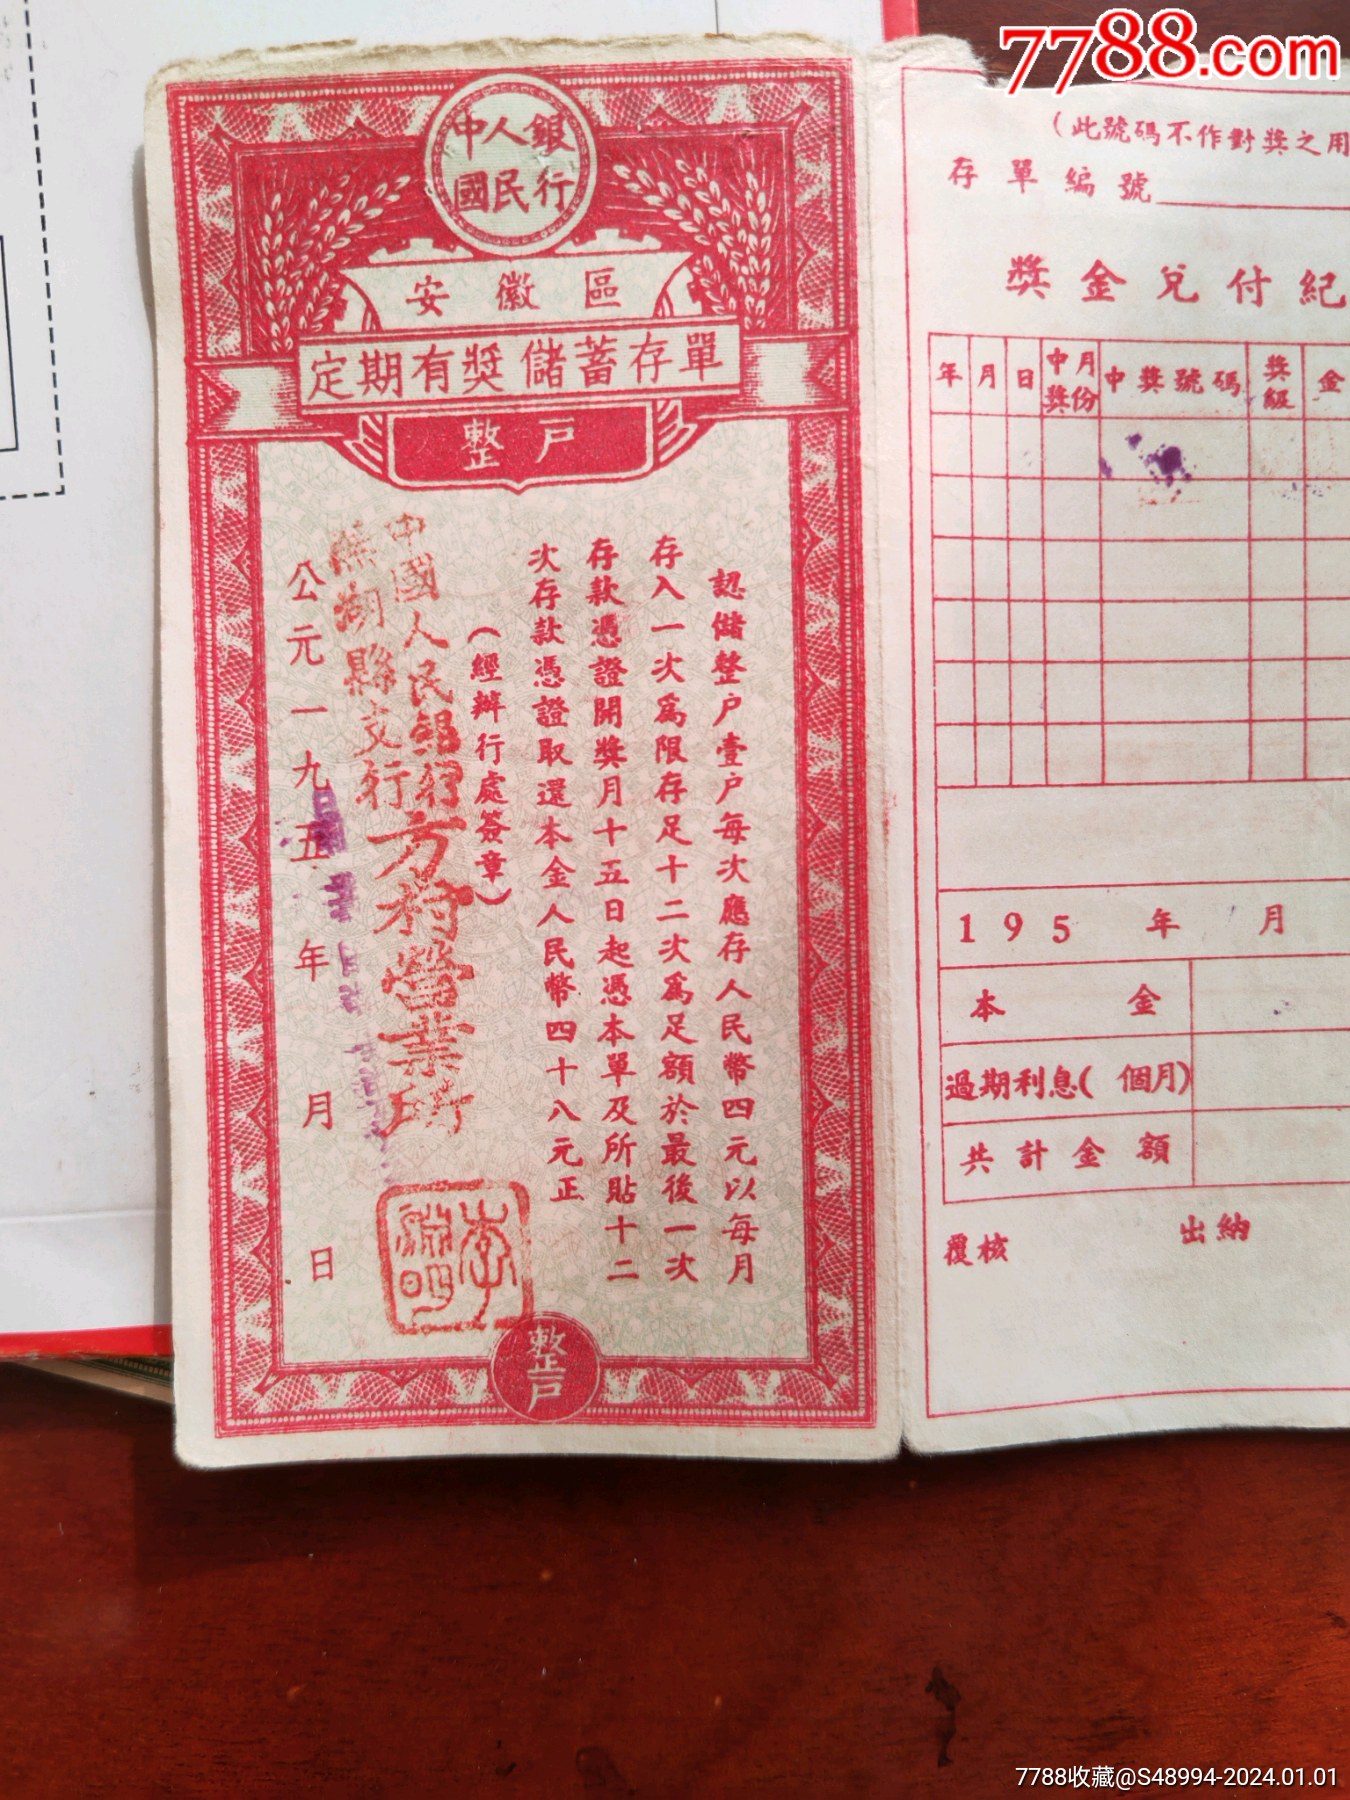 7788.com
中國人民銀行
安徽區
定期有獎儲蓄存單
整戶
認儲整戶壹戶每次應存人民幣四元以每月
存入一次為限存足十二次為足額於最後一次
存款憑證開獎月十五日起憑本單及所貼十二
次存款憑證取還本金人民幣四十八元正
(經辦行處簽章)
中國人民銀行
蕪湖縣支行
方村營業所
公元一九五 年 月 日
整戶
(此號碼不作對獎之用
存單編號
獎金兌付紀
年 月 日 中獎月份 中獎號碼 獎級 金
195 年 月
本金
過期利息( 個月)
共計金額
覆核 出納
7788收藏@S48994-2024.01.01